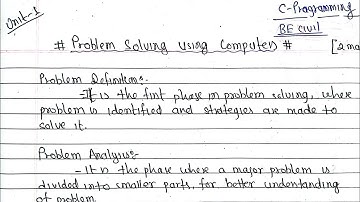 Unit-1
C-Programming
BE civil
# Problem Solving Using Computers #
[2 ma
Problem Definition:-
- It is the first phase in problem solving, where
problem is identified and strategies are made to
solve it.
Problem Analysis:-
- It is the phase where a major problem is
divided into smaller parts, for better understanding
of problem